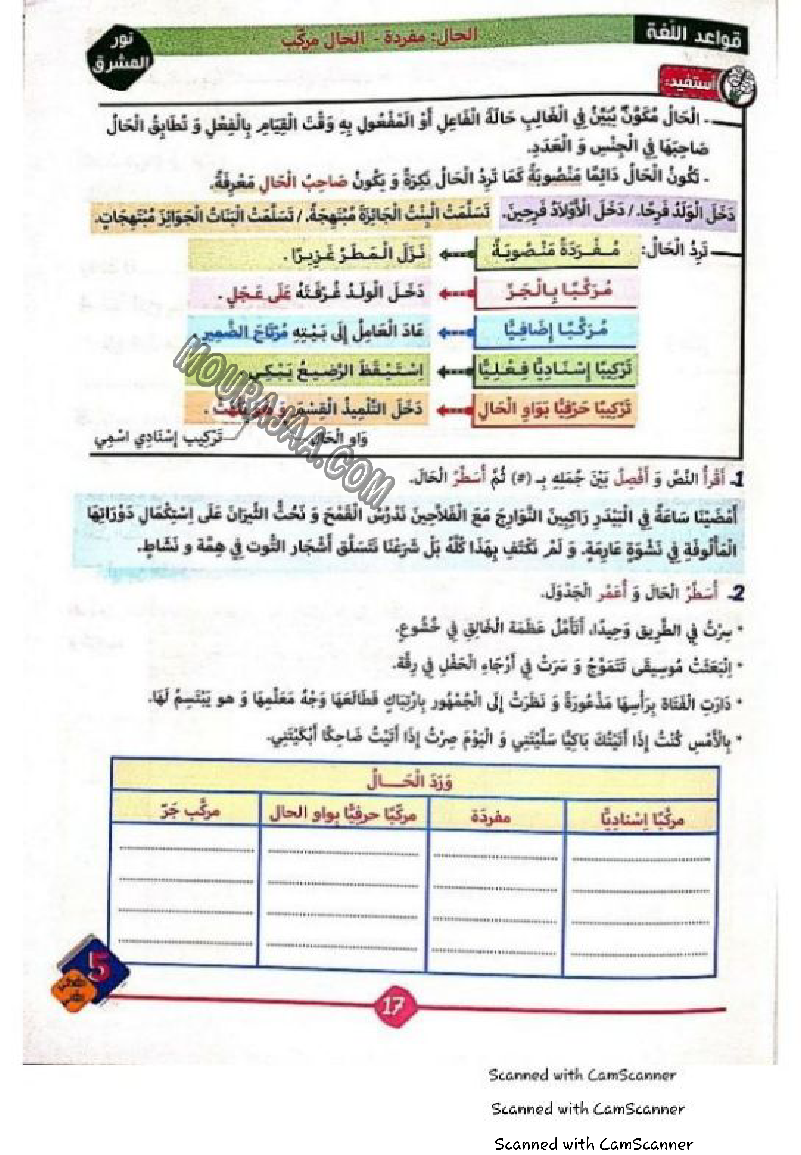 قواعد اللّغة
الحال: مفردة - الحال مركّب
نور
المشرق
أستفيد:
- الْحَالُ مُكَوِّنٌ يُبَيِّنُ فِي الْغَالِبِ حَالَةَ الْفَاعِلِ أَوْ الْمَفْعُولِ بِهِ وَقْتَ الْقِيَامِ بِالْفِعْلِ وَ تُطَابِقُ الْحَالُ
صَاحِبَهَا فِي الْجِنْسِ وَ الْعَدَدِ.
- تَكُونُ الْحَالُ دَائِمًا مَنْصُوبَةً كَمَا تَرِدُ الْحَالُ نَكِرَةً وَ يَكُونُ صَاحِبُ الْحَالِ مَعْرِفَةً.
دَخَلَ الْوَلَدُ فَرِحًا. / دَخَلَ الْأَوْلَادُ فَرِحِينَ. تَسَلَّمَتْ الْبِنْتُ الْجَائِزَةَ مُبْتَهِجَةً. / تَسَلَّمَتْ الْبَنَاتُ الْجَوَائِزَ مُبْتَهِجَاتٍ.
تَرِدُ الْحَالُ: مُفْرَدَةً مَنْصُوبَةً نَزَلَ الْمَطَرُ غَزِيرًا.
مُرَكَّبًا بِالْجَرِّ دَخَلَ الْوَلَدُ غُرْفَتَهُ عَلَى عَجَلٍ.
مُرَكَّبًا إِضَافِيًّا عَادَ الْعَامِلُ إِلَى بَيْتِهِ مُرْتَاحَ الضَّمِيرِ
تَرْكِيبًا إِسْنَادِيًّا فِعْلِيًّا اِسْتَيْقَظَ الرَّضِيعُ يَبْكِي.
تَرْكِيبًا حَرْفِيًّا بِوَاوِ الْحَالِ دَخَلَ التِّلْمِيذُ الْقِسْمَ وَ هُوَ يَلْهَثُ.
وَاو الْحَال تَرْكِيب إِسْنَادِي اسْمِي
MOURAJAA.COM
1ـ أَقْرَأُ النَّصَّ وَ أَفْصِلُ بَيْنَ جُمَلِهِ بِـ (#) ثُمَّ أُسَطِّرُ الْحَالَ.
أَمْضَيْنَا سَاعَةً فِي الْبَيْدَرِ رَاكِبِينَ النَّوَارِجَ مَعَ الْفَلَّاحِينَ نَدْرُسُ الْقَمْحَ وَ نَحُثُّ الثِّيرَانَ عَلَى اِسْتِكْمَالِ دَوْرَاتِهَا
الْمَأْلُوفَةِ فِي نَشْوَةٍ عَارِمَةٍ. وَ لَمْ نَكْتَفِ بِهَذَا كُلِّهُ بَلْ شَرَعْنَا نَتَسَلَّق أَشْجَار التُّوت فِي هِمَّة و نَشَاطٍ.
2ـ أُسَطِّرُ الْحَالَ وَ أُعَمِّر الْجَدْوَلَ.
* سِرْتُ فِي الطَّرِيق وَحِيدًا، أَتَأَمَّلُ عَظَمَة الْخَالِقِ فِي خُشُوعٍ.
* اِنْبَعَثَتْ مُوسِيقَى تَتَمَوَّجُ وَ سَرَتْ فِي أَرْجَاءِ الْحَفْلِ فِي رِقَّة.
* دَارَتِ الْفَتَاة بِرَأْسِهَا مَذْعُورَةً وَ نَظَرَتْ إِلَى الْجُمْهُور بِارْتِبَاكٍ فَطَالَعَهَا وَجْهُ مُعَلِّمِهَا وَ هو يَبْتَسِمُ لَهَا.
* بِالْأَمْسِ كُنْتُ إِذَا أَتَيْتُكَ بَاكِيًا سَلَّيْتَنِي وَ الْيَوْمَ صِرْتُ إِذَا أَتَيْتُ ضَاحِكًا أَبْكَيْتَنِي.
وَرَدَ الْحَـــالُ
مركّبًا إسْنادِيًّا مفردَة مركّبًا حرفِيًّا بِواو الحال مركّب جَرّ
5
17
Scanned with CamScanner
Scanned with CamScanner
Scanned with CamScanner